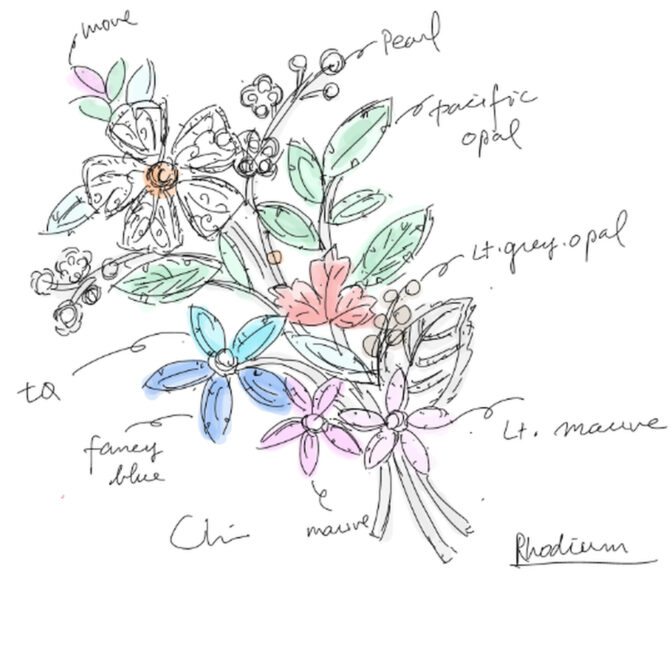 move
Pearl
pacific
opal
Lt.grey.opal
tQ
fancy
blue
Lt. mauve
mauve
Rhodium